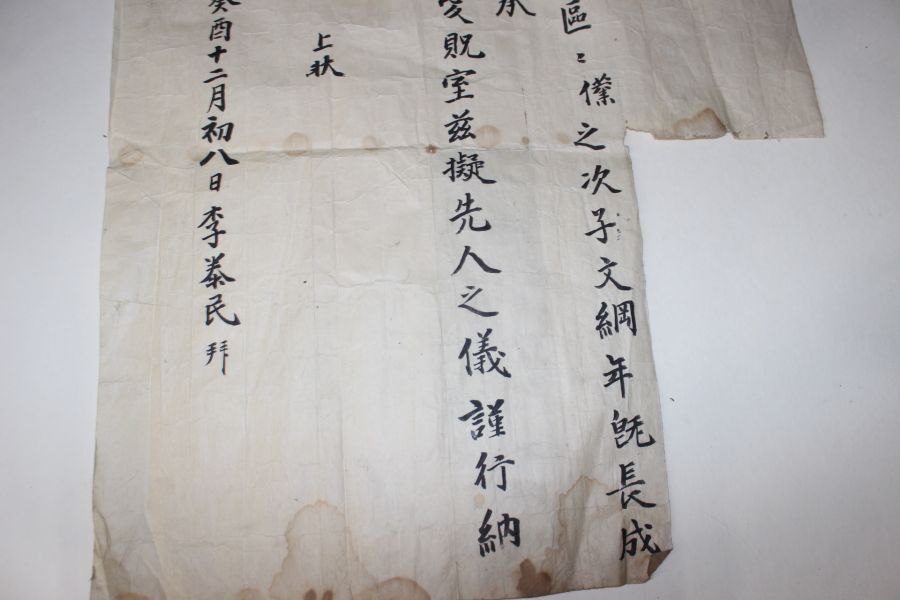 區〻僕之次子文綱年旣長成
承
愛貺室茲擬先人之儀謹行納
上狀
癸酉十二月初八日李泰民拜